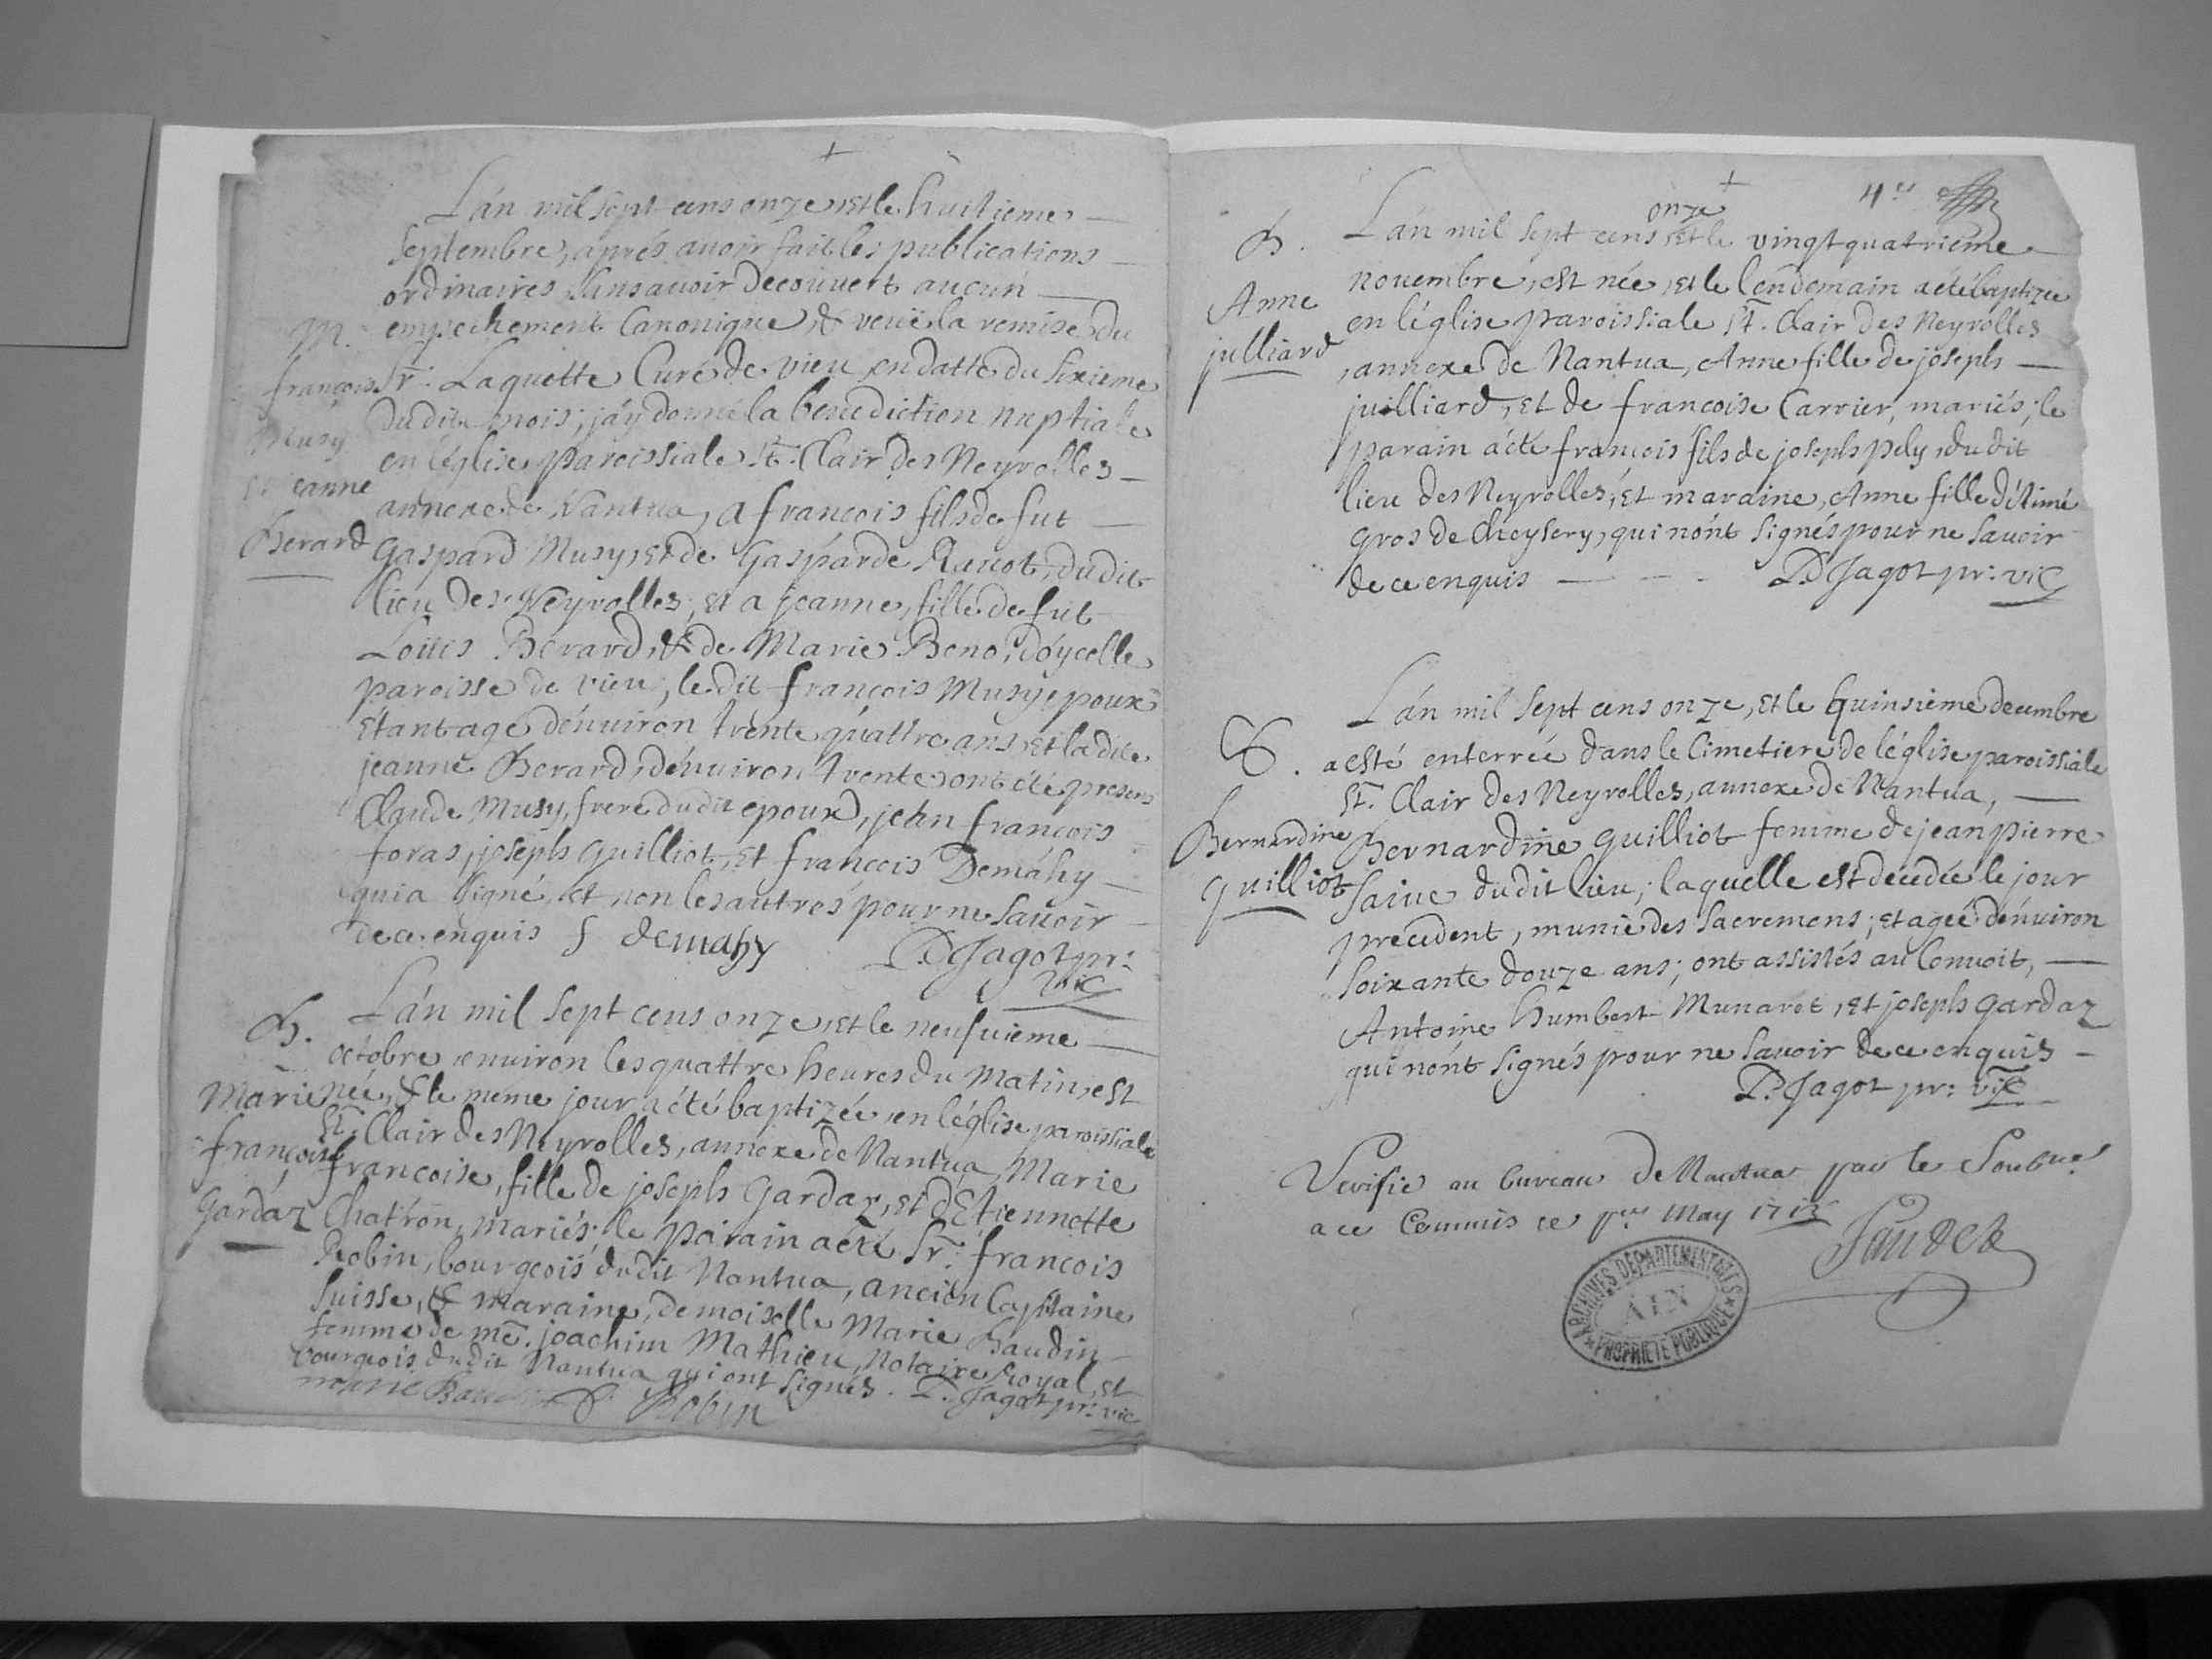 L'án mil sept cens onze, et le huitieme
septembre, aprés avoir fait les publications
ordinaires sans avoir decouvert aucun
empechement Canonique, & veüe la remise du
Sr. Laquette Curé de vieu en datte du sixieme
dudit mois; j'áy donné la benediction nuptiale
en l'église paroissiale St. Clair des Neyrolles
annexe de Nantua, a francois fils de fut
Gaspard Musy, et de Gaspárde Ravot, dudit
lieu des Neyrolles, et a jeanne, fille de fut
Loüis Berard, & de Marie Beno, d'óycelle
paroisse de vieu, le dit françois Musy epoux
étant agé d'énviron trente quáttre ans, et la dite
jeanne Berard, d'énviron trente; ont été presens
Claude Musy, frere dudit epoux, jean francois
foras, joseph Guilliot, et francois Demáhy
qui a signé, et non les autrés pour ne savoir
de ce enquis f demahy P. Jagot pr:
vic
M.
françois
Musy
et jeanne
Berard
L'án mil sept cens onze, et le neufvieme
octobre environ les quattre heures du matin, est
née, & le meme jour a été baptizée en l'église paroissiale
St. Clair des Neyrolles, annexe de Nantua, Marie
francoise, fille de joseph Gardaz, et d'Etiennette
Chatrón, mariés; le párain a été Sr. francois
Robin, bourgeois dudit Nantua, ancien Capitaine
Suisse, & maraine, demoiselle Marie Baudin
femme de me. joachim Mathieu, Notaire Royal, et
bourgeois dudit Nantua qui ont signés. P. Jagot pr: vic
marie Baudin Robin
B.
Marie
françoise
Gardáz
4e
onze
L'án mil sept cens et le vingt quatrieme
novembre, est née, et le lendemain a été baptizée
en l'église paroissiale St. Clair des Neyrolles
annexe de Nantua, Anne fille de joseph
juilliard, et de francoise Carrier, mariés; le
parain á été francois fils de joseph pely, dudit
lieu des Neyrolles, et maraine, Anne fille d'étimé
gros de Cheysery, qui n'ónt signés pour ne savoir
de ce enquis P. Jagot pr: vic
B.
Anne
julliard
L'án mil sept cens onze, et le quinsieme decembre
a esté enterrée dans le Cimetiere de l'église paroissiale
St. Clair des Neyrolles, annexe de Nantua,
Bernardine guilliot femme de jean pierre
saive dudit lieu; laquelle est decedée le jour
precedent, munie des sacremens; et ageé d'énviron
soixante douze ans; ont assistés au Convoit,
Antoine humbert Munaret, et joseph gardaz
qui n'ónt signés pour ne savoir de ce enquis
P. Jagot pr: vic
S.
Bernardine
guilliot
Verifié au bureau de Nantua par le
a ce Commis ce per May 1713
ARCHIVES DÉPARTEMENTALES
AIN
PROPRIÉTÉ PUBLIQUE